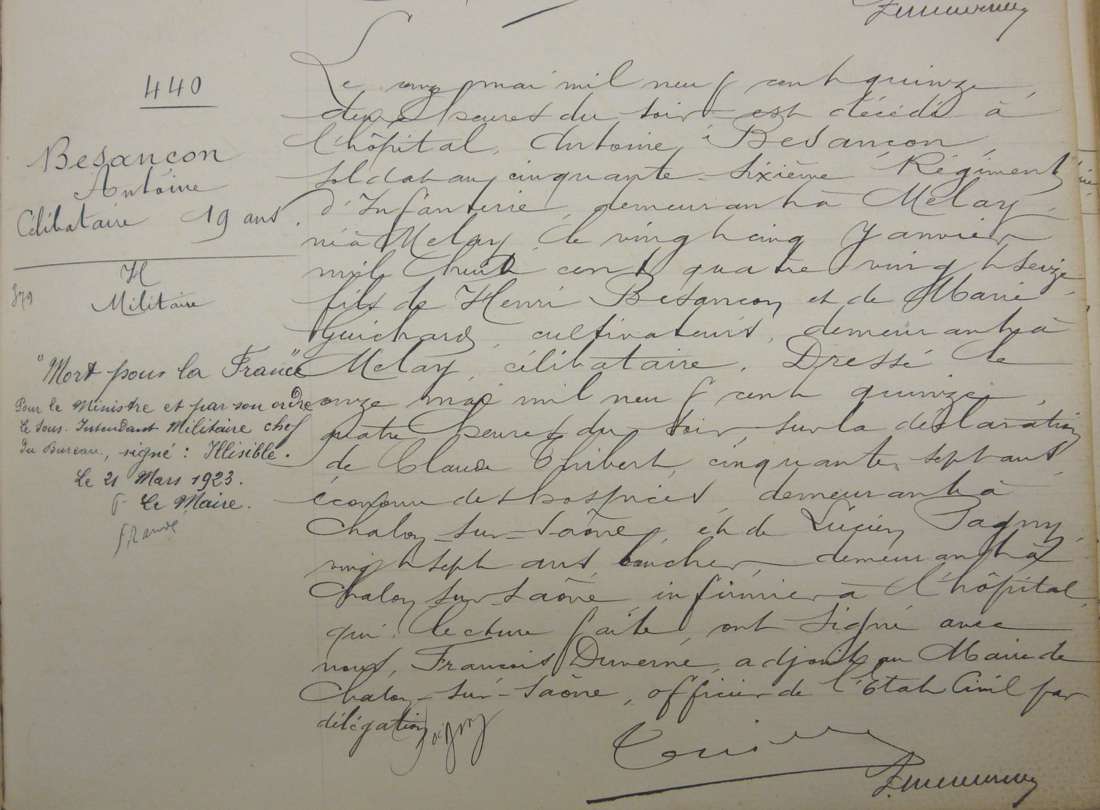 440
Besançon
Antoine
Célibataire 19 ans.
H
Militaire
379
"Mort pour la France"
Pour le Ministre et par son ordre
Le Sous-Intendant Militaire chef
du Bureau, signé: Illisible.
Le 21 Mars 1923.
Le Maire.
Le onze mai mil neuf cent quinze,
deux heures du soir est décédé à
l'hôpital, Antoine Besançon,
soldat au cinquante-sixième Régiment
d'Infanterie, demeurant à Melay,
né à Melay, le vingt cinq Janvier
mil huit cent quatre vingt seize,
fils de Henri Besançon et de Marie
Guichard, cultivateurs, demeurant à
Melay, célibataire. Dressé le
onze mai mil neuf cent quinze,
quatre heures du soir, sur la déclaration
de Claude Thibert, cinquante sept ans,
économe des hospices, demeurant à
Chalon-sur-Saône, et de Lucien Pagny,
vingt sept ans boucher, demeurant à
Chalon sur Saône infirmier à l'hôpital,
qui, lecture faite, ont signé avec
nous, François Duverne, adjoint au Maire de
Chalon-sur-Saône, officier de l'Etat Civil par
délégation
Pagny